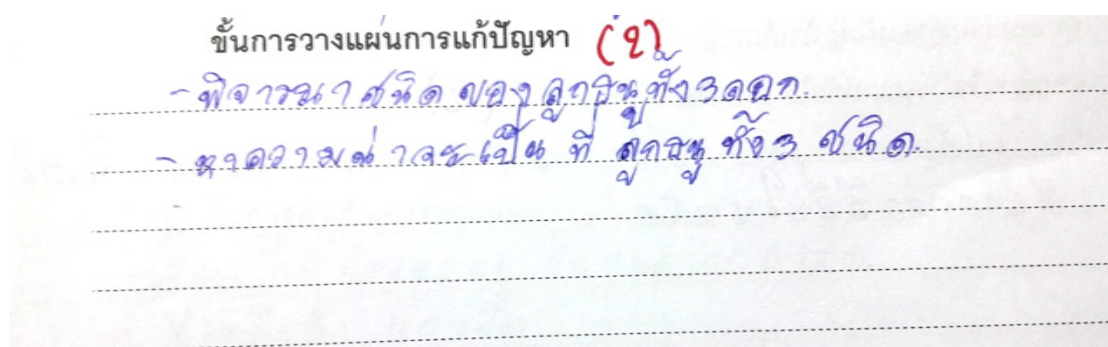 ขั้นการวางแผนการแก้ปัญหา (2)
- พิจารณาชนิด ของลูกธนูทั้ง 3 ดอก.
- หาความน่าจะเป็น ที่ ลูกธนู ทั้ง 3 ชนิด.